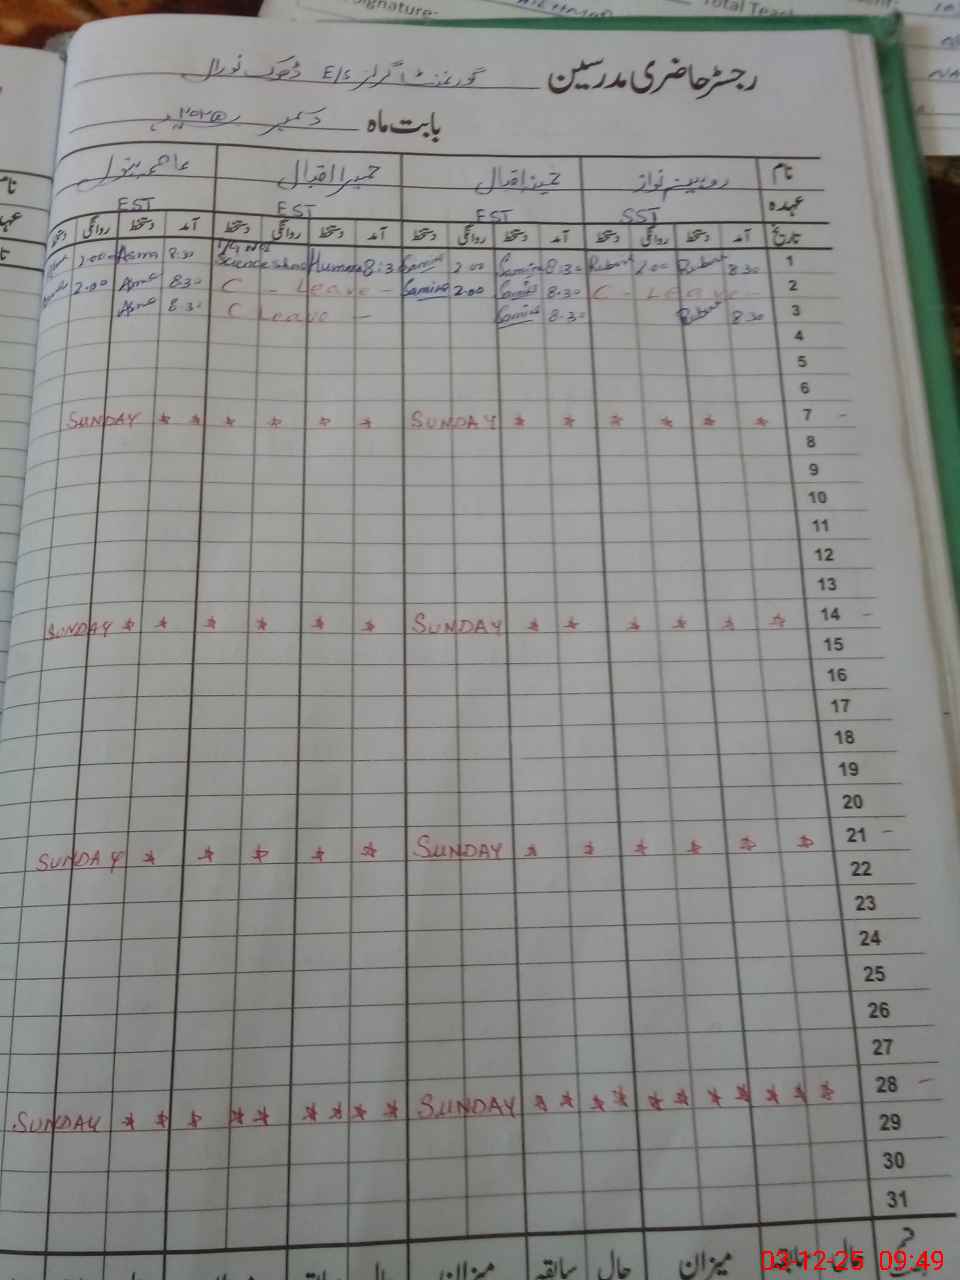 Signature:
Total Teac
رجسٹر حاضری مدرسین گورنمنٹ گرلز E/S ڈھوک نورال
بابت ماہ دسمبر ۲۰۲۵
نام روبینہ نواز ثمینہ اقبال حمیرا اقبال عاصمہ بتول
عہدہ SST EST EST EST
تاریخ آمد دستخط روانگی دستخط آمد دستخط روانگی دستخط آمد دستخط روانگی دستخط آمد دستخط روانگی دستخط
1 8.30 2.00 8.30 Samina 2.00 Samina 8:3 Humma Science 8.30 Asma 2.00
2 C - Leave - 8.30 Samina 2.00 Samina C - Leave - 8.30 Asma 2.00
3 8.30 8.30 Samina C Leave - 8.30 Asma
4
5
6
7 - SUNDAY * * * * * * SUNDAY * * * * * *
8
9
10
11
12
13
14 - SUNDAY * * * * * * SUNDAY * * * * * *
15
16
17
18
19
20
21 - SUNDAY * * * * * * SUNDAY * * * * *
22
23
24
25
26
27
28 - SUNDAY * * * * * * * * * * * SUNDAY * * * * * * * * *
29
30
31
حال میزان حال سابقہ میزان
03-12-25 09:49